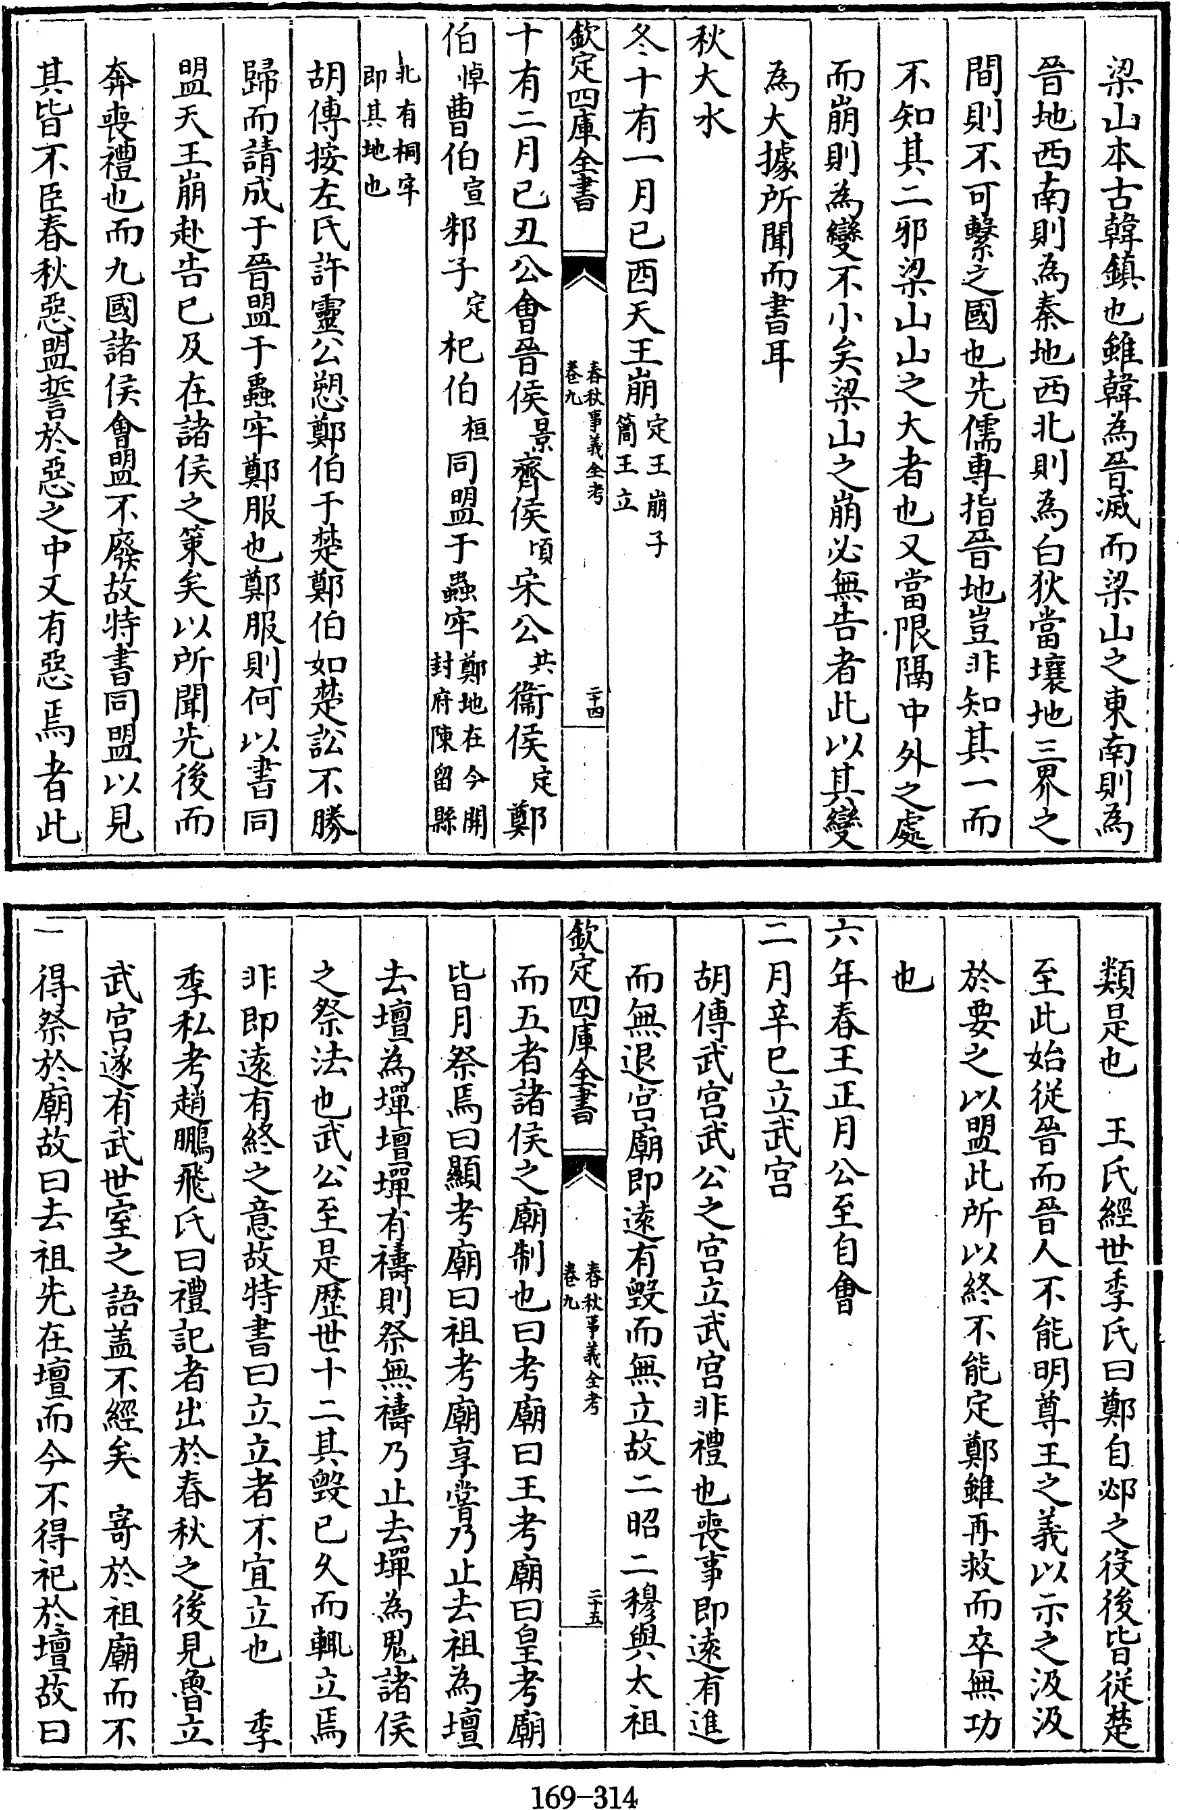 梁山本古韓鎮也雖韓為晉滅而梁山之東南則為
晉地西南則為秦地西北則為白狄當壤地三界之
間則不可繫之國也先儒專指晉地豈非知其一而
不知其二邪梁山山之大者也又當限隔中外之處
而崩則為變不小矣梁山之崩必無告者此以其變
為大據所聞而書耳
秋大水
冬十有一月已酉天王崩定王崩子簡王立
欽定四庫全書
春秋事義全考
卷九
二十四
十有二月已丑公會晉侯景齊侯頃宋公共衞侯定鄭
伯悼曹伯宣邾子定杞伯桓同盟于蟲牢鄭地在今開封府陳留縣
北有桐牢即其地也
胡傳按左氏許靈公愬鄭伯于楚鄭伯如楚訟不勝
歸而請成于晉盟于蟲牢鄭服也鄭服則何以書同
盟天王崩赴告已及在諸侯之策矣以所聞先後而
奔喪禮也而九國諸侯會盟不廢故特書同盟以見
其皆不臣春秋惡盟誓於惡之中又有惡焉者此
類是也 王氏經世季氏曰鄭自邲之役後皆從楚
至此始從晉而晉人不能明尊王之義以示之汲汲
於要之以盟此所以終不能定鄭雖再救而卒無功
也
六年春王正月公至自會
二月辛巳立武宮
胡傳武宮武公之宮立武宮非禮也喪事即遠有進
而無退宮廟即遠有毀而無立故二昭二穆與太祖
欽定四庫全書
春秋事義全考
卷九
二十五
而五者諸侯之廟制也曰考廟曰王考廟曰皇考廟
皆月祭焉曰顯考廟曰祖考廟享嘗乃止去祖為壇
去壇為墠壇墠有禱則祭無禱乃止去墠為鬼諸侯
之祭法也武公至是歷世十二其毀已久而輒立焉
非即遠有終之意故特書曰立立者不宜立也 季
季私考趙鵬飛氏曰禮記者出於春秋之後見魯立
武宮遂有武世室之語盖不經矣 寄於祖廟而不
一得祭於廟故曰去祖先在壇而今不得祀於壇故曰
169-314